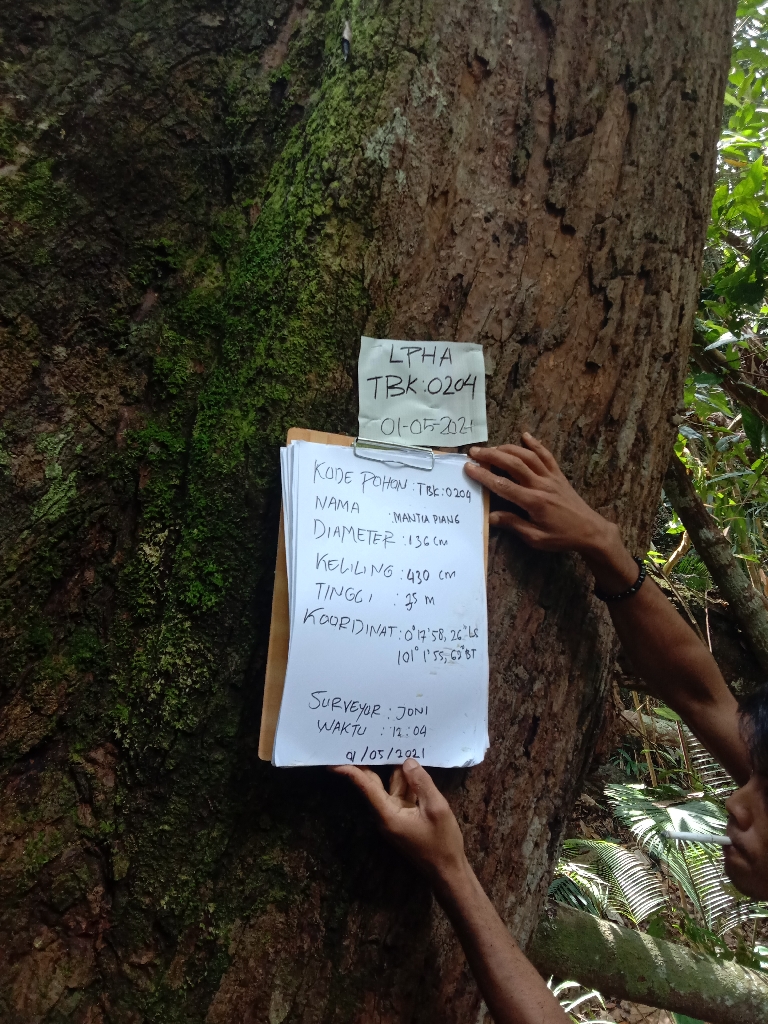 LPHA
TBK:0204
01-05-2021
KODE POHON : TBK:0204
NAMA : MANTIA PIANG
DIAMETER : 136 cm
KELILING : 430 cm
TINGGI : 35 m
KOORDINAT : 0°17'58,26" LS
101°1'55,62" BT
SURVEYOR : JONI
WAKTU : 12:04
01/05/2021